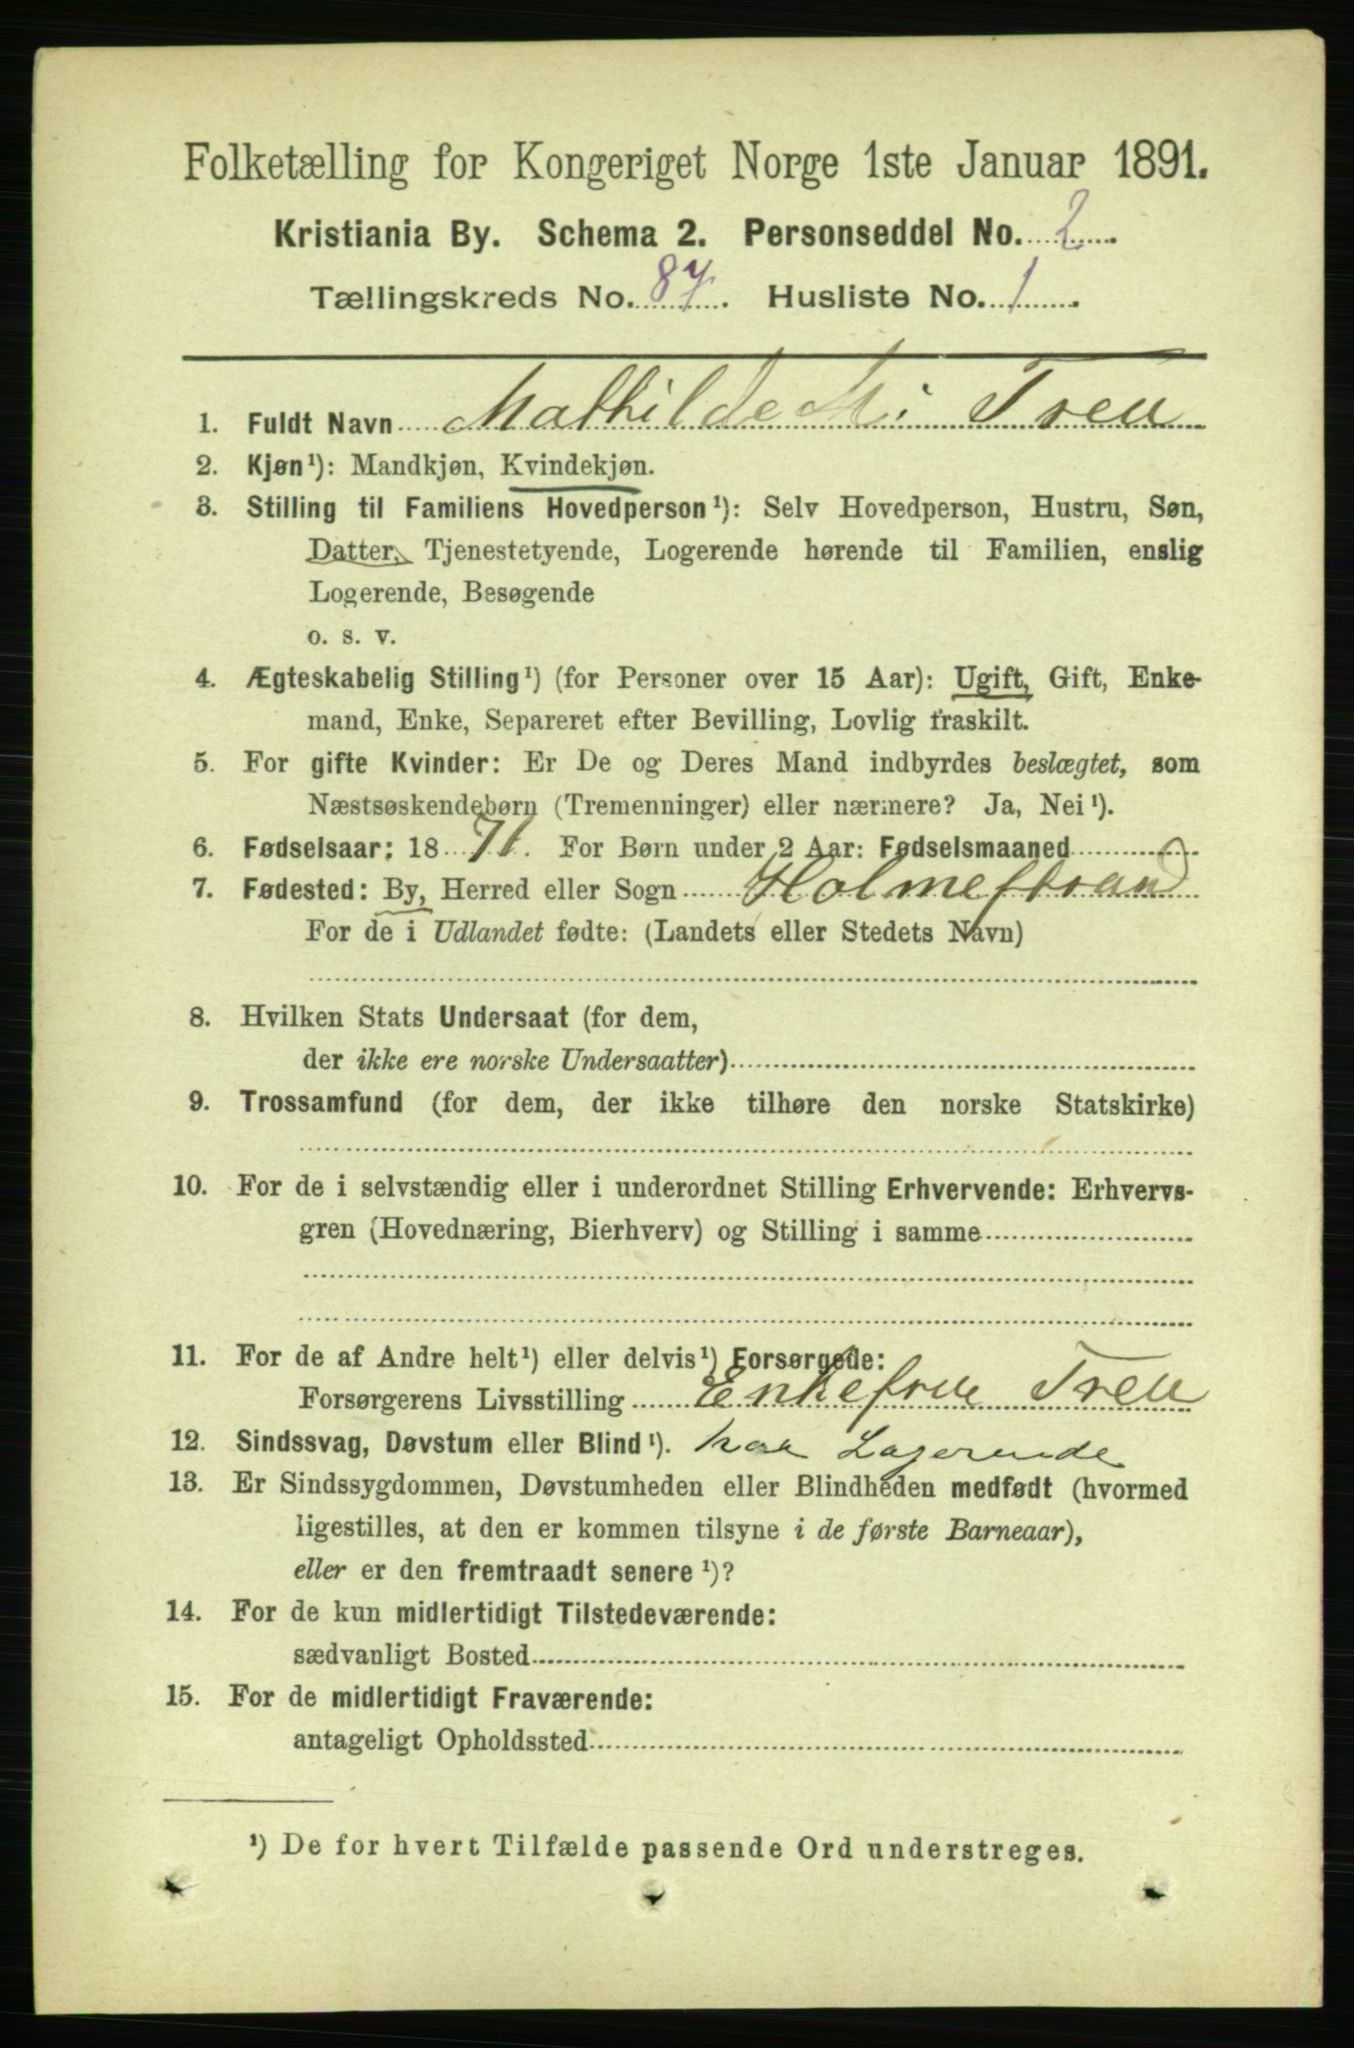 Folketælling for Kongeriget Norge 1ste Januar 1891.
Kristiania By. Schema 2. Personseddel No. 2
Tællingskreds No. 87. Husliste No. 1
1. Fuldt Navn Mathilde M. Treu
2. Kjøn¹): Mandkjøn, Kvindekjøn.
3. Stilling til Familiens Hovedperson¹): Selv Hovedperson, Hustru, Søn,
Datter, Tjenestetyende, Logerende hørende til Familien, enslig
Logerende, Besøgende
o. s. v.
4. Ægteskabelig Stilling¹) (for Personer over 15 Aar): Ugift, Gift, Enke-
mand, Enke, Separeret efter Bevilling, Lovlig fraskilt.
5. For gifte Kvinder: Er De og Deres Mand indbyrdes beslægtet, som
Næstsøskendebørn (Tremenninger) eller nærmere? Ja, Nei¹).
6. Fødselsaar: 1871. For Børn under 2 Aar: Fødselsmaaned
7. Fødested: By, Herred eller Sogn Holmestrand
For de i Udlandet fødte: (Landets eller Stedets Navn)
8. Hvilken Stats Undersaat (for dem,
der ikke ere norske Undersaatter)
9. Trossamfund (for dem, der ikke tilhøre den norske Statskirke)
10. For de i selvstændig eller i underordnet Stilling Erhvervende: Erhvervs-
gren (Hovednæring, Bierhverv) og Stilling i samme
11. For de af Andre helt¹) eller delvis¹) Forsørgede:
Forsørgerens Livsstilling Enkefrue Treu
12. Sindssvag, Døvstum eller Blind¹). har Logerende
13. Er Sindssygdommen, Døvstumheden eller Blindheden medfødt (hvormed
ligestilles, at den er kommen tilsyne i de første Barneaar),
eller er den fremtraadt senere¹)?
14. For de kun midlertidigt Tilstedeværende:
sædvanligt Bosted
15. For de midlertidigt Fraværende:
antageligt Opholdssted
¹) De for hvert Tilfælde passende Ord understreges.